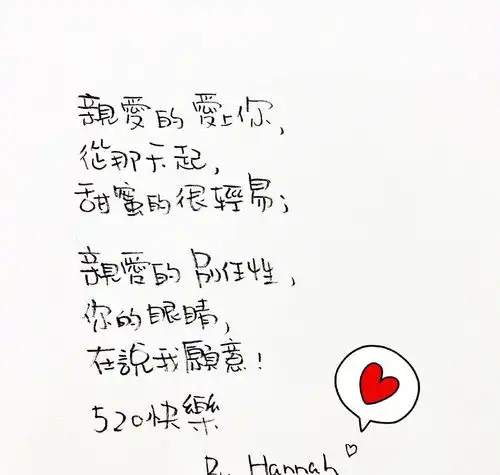 親愛的愛上你,
從那天起,
甜蜜的很輕易;
親愛的別任性,
你的眼睛,
在說我願意!
520快樂
By Hannah